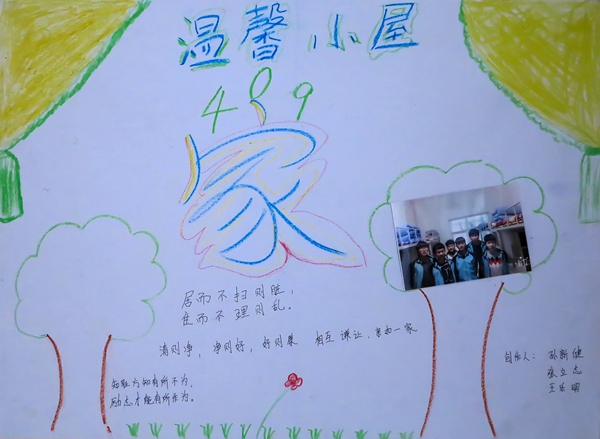 温馨小屋
409
家
居而不扫则脏，
住而不理则乱。
清则净，净则好，好则果 相互谦让，亲如一家
知耻方知有所不为，
励志才能有所作为。
创作人：孙新健
张立志
王乐明